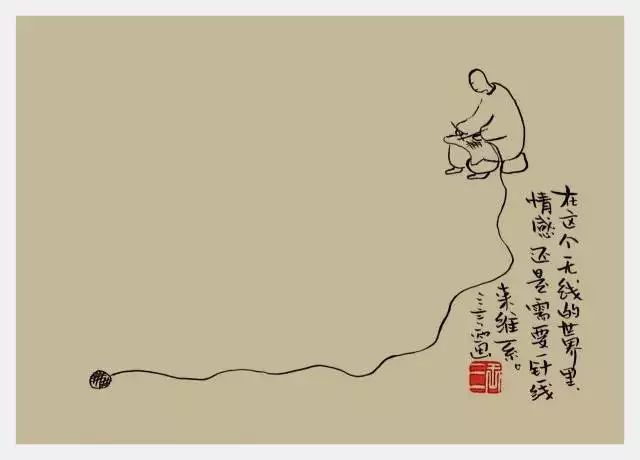 在这个无线的世界里、
情感还是需要一针线
来维系。